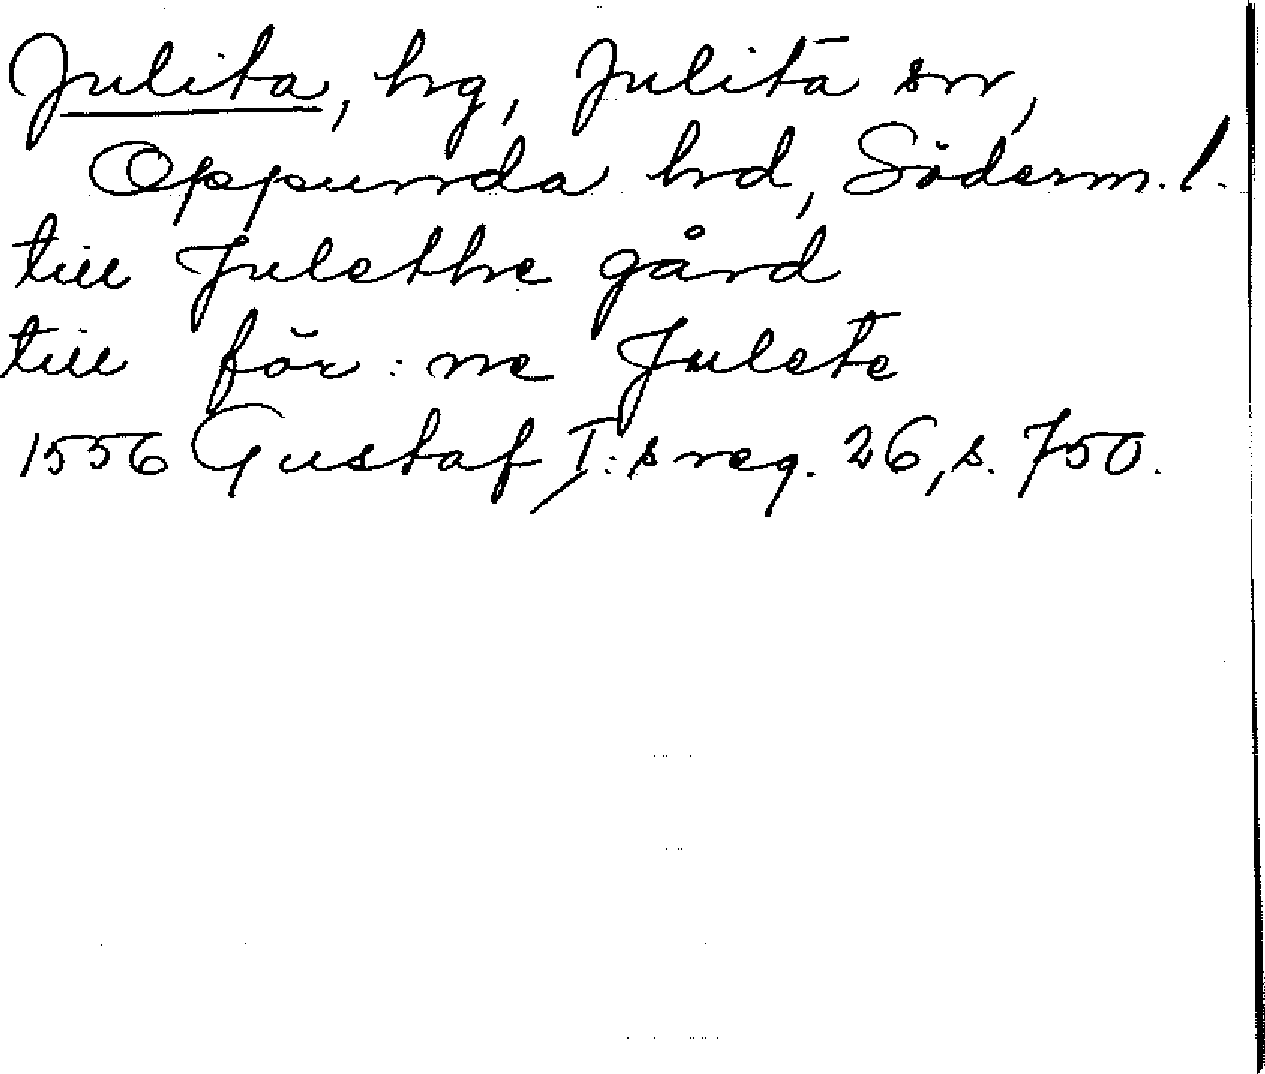 Julita, hg, Julita sn,
Oppunda hd, Söderm. l.
till Julethe gård
till för:ne Julete
1556 Gustaf I:s reg. 26, s. 750.